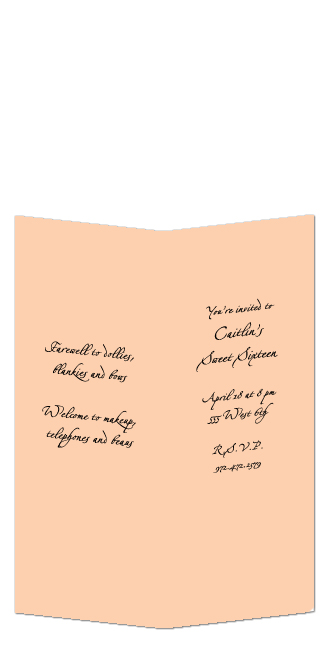 Farewell to dollies,
blankies and bows
Welcome to makeup,
telephones and beaus
You're invited to
Caitlin's
Sweet Sixteen
April 28 at 8 pm
555 West 6th
R.S.V.P.
972.472.2579